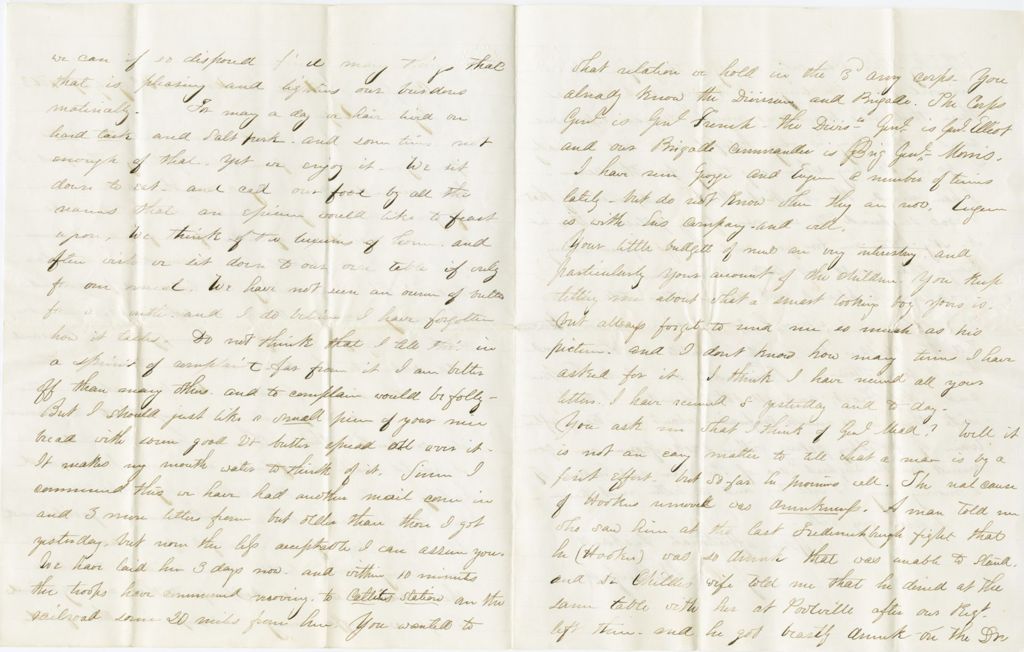 we can if so disposed find many things that
that is pleasing and lightens our burdens
materially. For many a day we have lived on
hard tack and salt pork. and some times not
enough of that. yet we enjoy it. We sit
down to eat. and call our food by all the
names that an epicure would like to feast
upon. We think of the luxuries of home. and
often wish we sit down to our own table if only
for one meal. We have not seen an ounce of butter
for a month. and I do believe I have forgotten
how it tastes. Do not think that I tell this in
a spirit of complaint far from it I am better
off than many others. and to complain would be folly -
But I should just like a small piece of your nice
bread with some good Vt butter spread all over it.
It makes my mouth water to think of it. Since I
commenced this we have had another mail come in
and 3 more letters from but older than those I got
yesterday. but none the less acceptable I can assure you.
We have laid here 3 days now. and within 10 minutes
the troops have commenced moving. to station on the
railroad some 20 miles from here. You wanted to
what relation we hold in the 3d army corps. You
already know the Division and Brigade. The Corps
Genl is Genl French - the Divisn Genl is Genl Elliot
and our Brigade commander is Brig Genl Morris.
I have seen George and Eugene a number of times
lately. but do not know where they are now. Eugene
is with his company. and well.
Your little budgets of news are very interesting. and
particularly your account of the children. You keep
telling me about what a smart looking boy yours is.
but always forget to send me so much as his
picture. and I dont know how many times I have
asked for it. I think I have received all your
letters. I have received 8 yesterday and to-day.
You ask me what I think of Genl Mead? Well it
is not an easy matter to tell what a man is by a
first effort. but so far he promises well. The real cause
of Hookers removal was drunkenness. A man told me
who saw him at the last Fredericksburgh fight that
he (Hooker) was so drunk that was unable to stand.
and Dr Childes wife told me that he dined at the
same table with her at Poolville after our Regt.
left there. and he got beastly drunk on the Drs